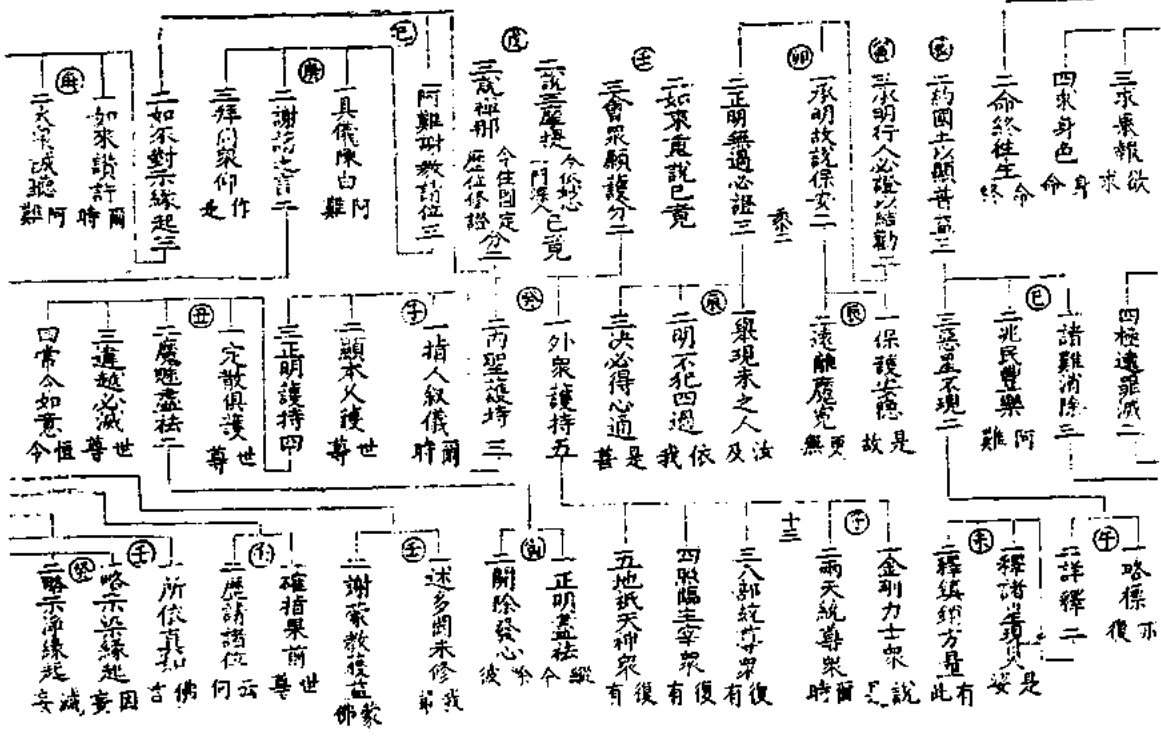 三求果報欲求
四求身色身命
二命終往生命終
辰
二約國土以顯普益三
寅
三承明行人必證以結勸二
卯
一承明故說保安二
二正明無過必證三
壬
二如來重說已竟
三會眾願護分二
戊
二說三摩提已竟
三說禪那今住圓定歷位修證分二
己
一阿難謝教請位三
庚
一具儀陳白阿難
二謝茲之言二
三拜問眾仰作是
二如來對示緣起三
庚
一如來讚許爾時
二大眾誠聽阿難
四極遠罪滅二
巳
一諸難消除三
二兆民豐樂阿難
三惡星不現二
辰
一保護安隱是故
二遠離魔冤更無
辰
一舉現未之人汝及
二明不犯四過依我
三決必得心通是善
癸
一外眾護持五
二內聖護持三
子
一指人敘儀爾時
二顯本久護世尊
三正明護持四
丑
一定散俱護世尊
二魔魅盡祛二
三違越必滅世尊
四常令如意恒令
午
一略標亦復
二詳釋二
未
一釋諸災現災是娑
二釋鎮綃方量有此
子
一金剛力士眾說是
二兩天統尊眾爾時
十三
三八部統尊眾復有
四照臨主宰眾復有
五地祇天神眾復有
寅
一正明盡祛縱令
二開除發心除彼
壬
一述多聞未修我
二謝蒙教護益蒙佛
一確指果前世尊
二歷請諸位云何
壬
一所依真如佛言
癸
一略示染緣起因妄
二略示淨緣起滅妄